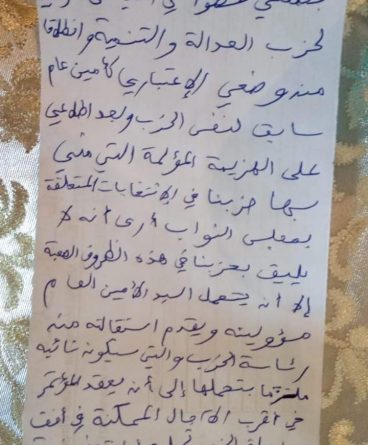 بصفتي عضوا في
لحزب العدالة والتنمية وانطلاقا
من وضعي الإعتباري كأمين عام
سابق لنفس الحزب وبعد اطلاعي
على الهزيمة المؤلمة التي مني
بها حزبنا في الإنتخابات المتعلقة
بمجلس النواب أرى أنه لا
يليق بحزبنا في هذه الظروف الصعبة
إلا أن يتحمل السيد الأمين العام
مسؤوليته ويقدم استقالته من
رئاسة الحزب والتي ستكون نائبه
ملتزما بتحملها إلى أن يعقد المؤتمر
في أقرب الآجال الممكنة في أفق